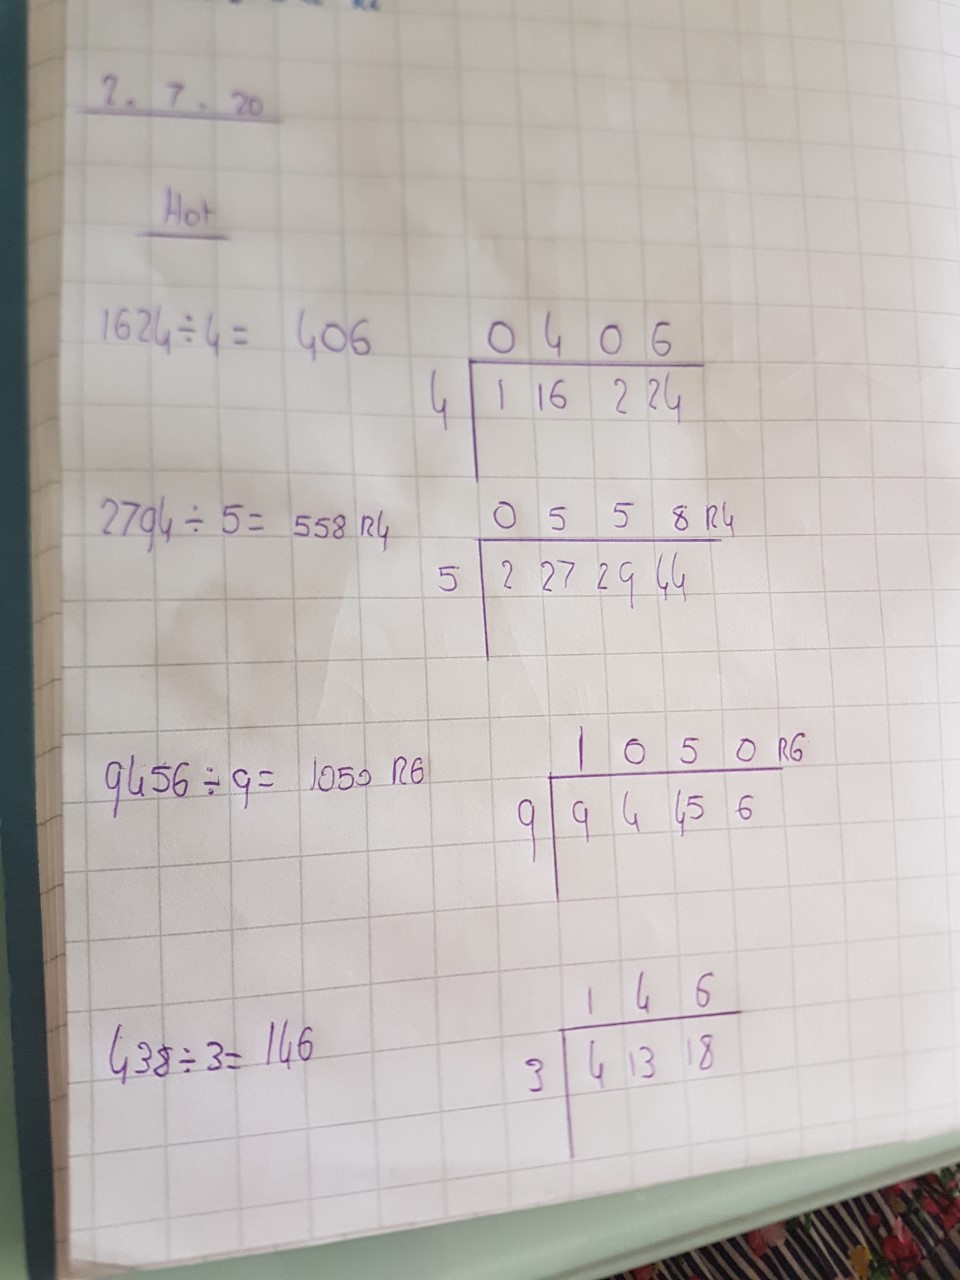 2. 7. 20
Hot
1624÷4= 406
0 4 0 6
4 1 16 2 24
2794÷5= 558 R4
0 5 5 8 R4
5 2 27 29 44
9456÷9= 1050 R6
1 0 5 0 R6
9 9 4 45 6
438÷3= 146
1 4 6
3 4 13 18